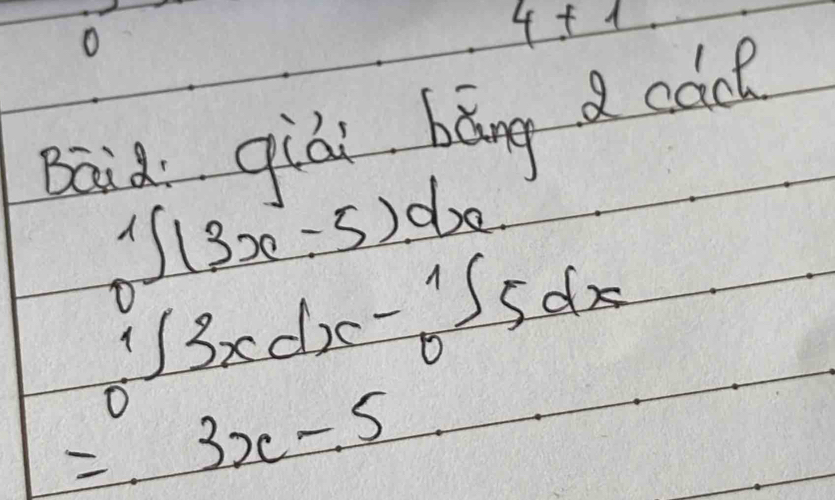 0 4 + 1
Bài 2: giải bằng 2 cách
₀¹∫(3x - 5)dx
₀¹∫3xdx - ₀¹∫5dx
= 3x - 5